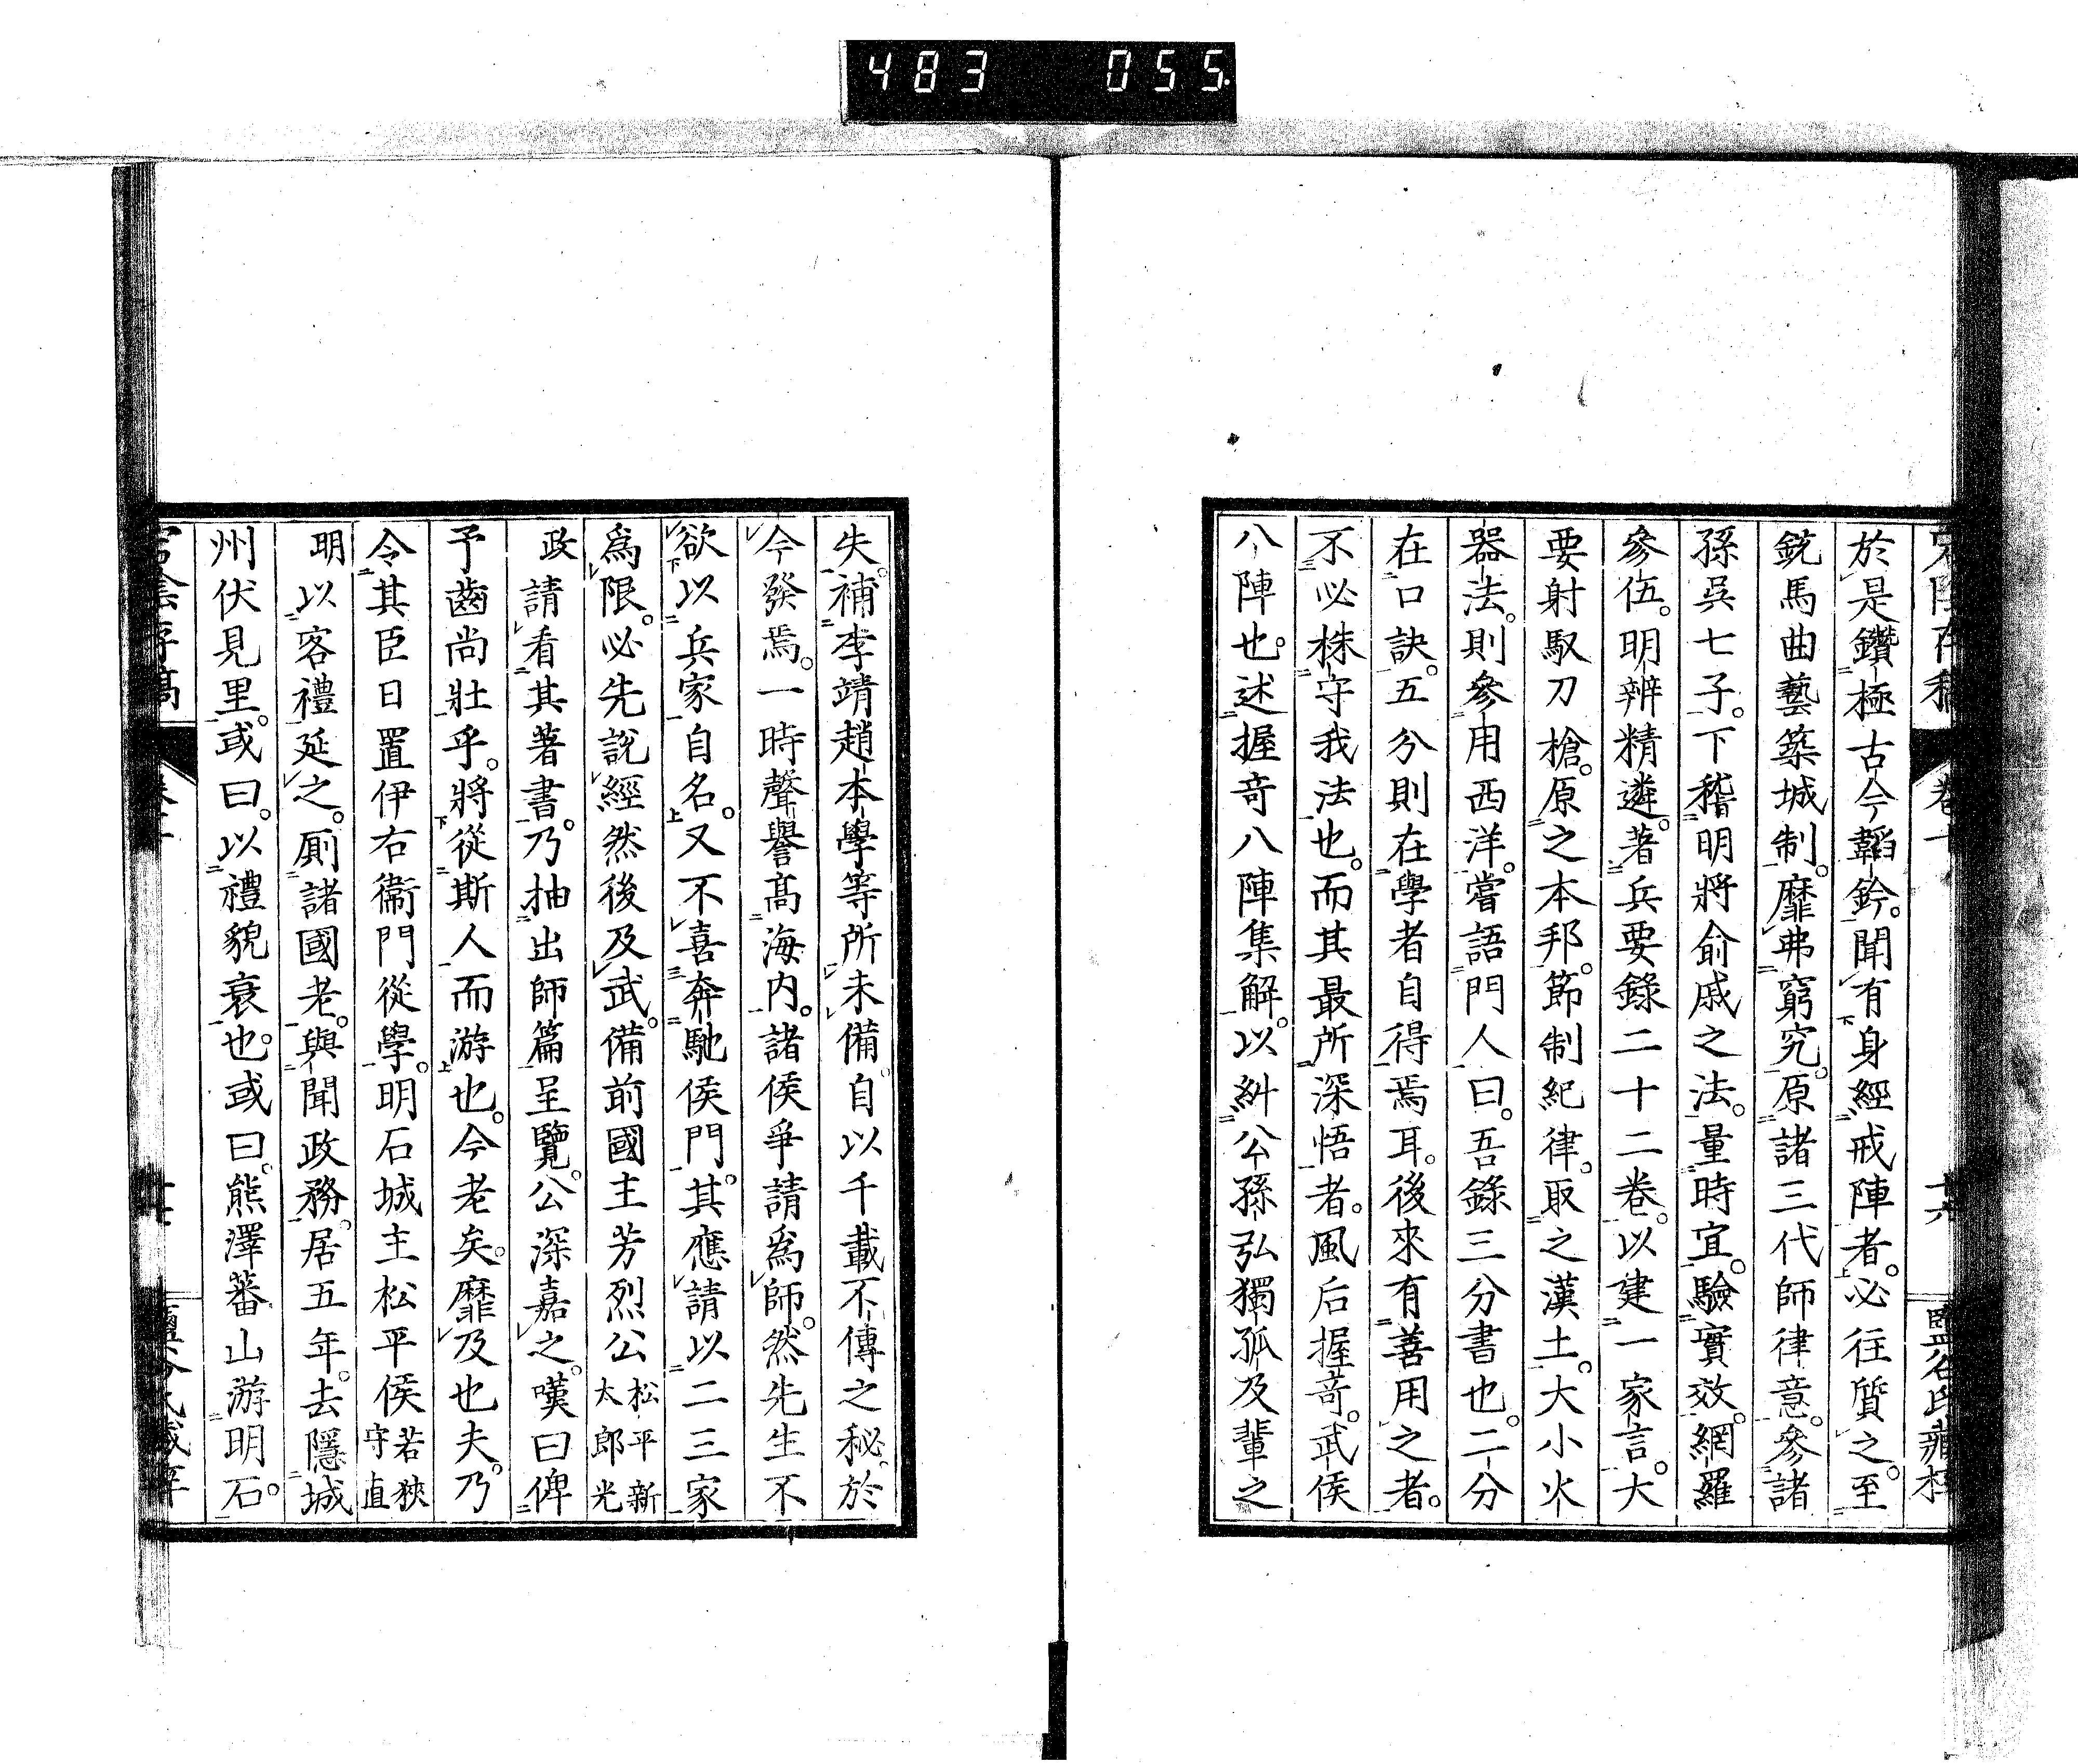 483 055
於是鑽極古今韜鈐。聞有身經戎陣者。必往質之。至
銃馬曲藝築城制。靡弗窮究。原諸三代師律意。參諸
孫吳七子。下稽明將俞戚之法。量時宜。驗實效。網羅
參伍。明辨精遴。著兵要錄二十二卷。以建一家言。大
要射馭刀槍。原之本邦。節制紀律。取之漢土。大小火
器法。則參用西洋。嘗語門人曰。吾錄三分書也。二分
在口訣。五分則在學者自得焉耳。後來有善用之者。
不必株守我法也。而其最所深悟者。風后握奇。武侯
八陣也。述握奇八陣集解。以糾公孫弘獨孤及輩之
失。補李靖趙本學等所未備。自以千載不傳之秘。於
今發焉。一時聲譽高海內。諸侯爭請爲師。然先生不
欲以兵家自名。又不喜奔馳侯門。其應請以二三家
爲限。必先說經然後及武。備前國主芳烈公松平新太郎光
政請看其著書。乃抽出師篇呈覽。公深嘉之。嘆曰俾
予齒尚壯乎。將從斯人而游也。今老矣。靡及也夫。乃
令其臣日置伊右衞門從學。明石城主松平侯若狹守直
明以客禮延之。厠諸國老。與聞政務。居五年。去隱城
州伏見里。或曰。以禮貌衰也。或曰。熊澤蕃山游明石。